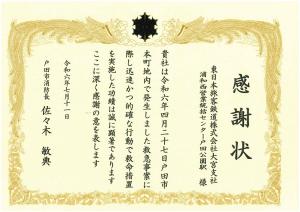 感謝状
東日本旅客鉄道株式会社大宮支社
浦和西営業統括センター戸田公園駅 様
貴社は令和六年四月二十七日戸田市
本町地内で発生しました救急事案に
際し迅速かつ的確な行動で救命措置
を実施した功績は誠に顕著であります
ここに深く感謝の意を表します
令和六年七月十一日
戸田市消防長 佐々木 敏典